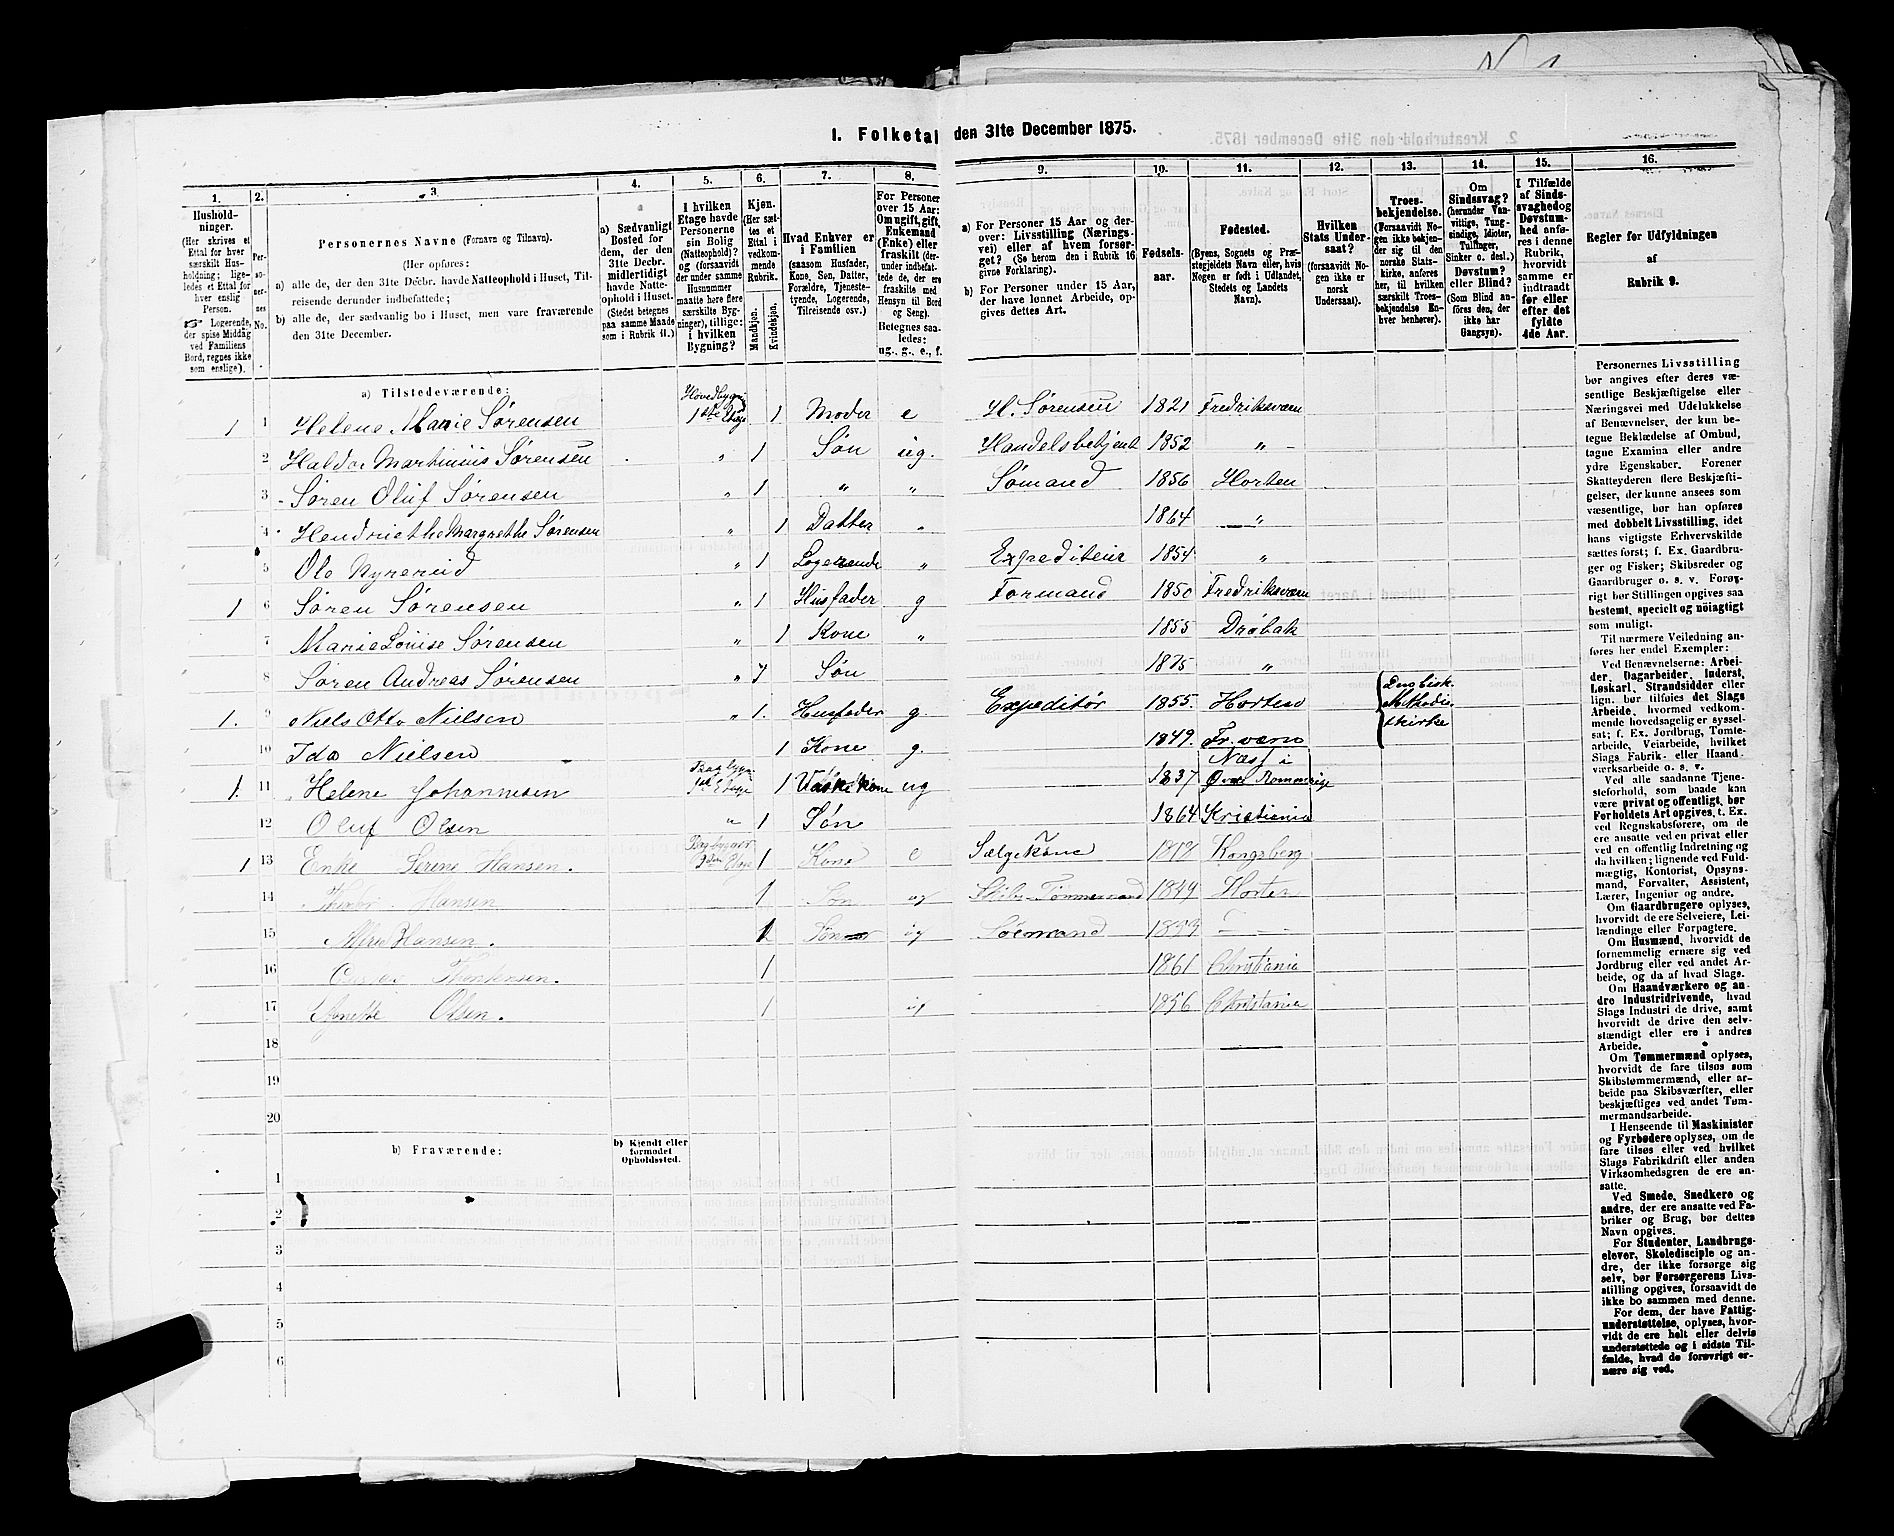 1. Folketal den 31te December 1875.
1. 2. 3. 4. 5. 6. 7. 8. 9. 10. 11. 12. 13. 14. 15. 16.
Hushold-
ninger.
(Her skrives et
Ettal for hver
særskilt Hus-
holdning; lige-
ledes et Ettal for
hver enslig
Person.
☞ Logerende,
der spise Middag
ved Familiens
Bord, regnes ikke
som enslige).
Per-
so-
ner-
nes
No.
Personernes Navne (Fornavn og Tilnavn).
(Her opføres:
a) alle de, der den 31te Decbr. havde Natteophold i Huset, Til-
reisende derunder indbefattede;
b) alle de, der sædvanlig bo i Huset, men vare fraværende
den 31te December.
a) Sædvanligt
Bosted for
dem, der den
31te Decbr.
midlertidigt
havde Natte-
ophold i Huset.
(Stedet betegnes
paa samme Maade
som i Rubrik 11.)
I hvilken
Etage havde
Personerne
sin Bolig
(Natteophold)?
og (forsaavidt
der under samme
Husnummer
maatte høre flere
særskilte Byg-
ninger), tillige:
i hvilken
Bygning?
Kjøn.
(Her sæt-
tes et
Ettal i
vedkom-
mende
Rubrik.
Mandkjøn.
Kvindekjøn.
Hvad Enhver er
i Familien
(saasom Husfader,
Kone, Søn, Datter,
Forældre, Tjeneste-
tyende, Logerende,
Tilreisende osv.)
For Personer
over 15 Aar:
Om ugift, gift,
Enkemand
(Enke) eller
fraskilt (der-
under indbefat-
tede de, der ere
fraskilte med
Hensyn til Bord
og Seng).
Betegnes saa-
ledes:
ug., g., e., f.
a) For Personer 15 Aar og der-
over: Livsstilling (Nærings-
vei) eller af hvem forsør-
get? (Se herom den i Rubrik 16
givne Forklaring).
b) For Personer under 15 Aar,
der have lønnet Arbeide, op-
gives dettes Art.
Fødsels-
aar.
Fødested.
(Byens, Sognets og Præ-
stegjeldets Navn eller, hvis
Nogen er født i Udlandet,
Stedets og Landets
Navn).
Hvilken
Stats Under-
saat?
(forsaavidt No-
gen ikke er
norsk
Undersaat).
Troes-
bekjendelse.
(Forsaavidt No-
gen ikke bekjen-
der sig til den
norske Stats-
kirke, anføres
her, til hvilken
særskilt Troes-
bekjendelse En-
hver henhører).
Om
Sindssvag?
(herunder Van-
vittige, Tung-
sindige, Idioter,
Tullinger,
Sinker o. desl.)
Døvstum?
eller Blind?
(Som Blind an-
føres den, der
ikke har
Gangsyn).
I Tilfælde
af Sinds-
svaghed og
Døvstum-
hed anfø-
res i denne
Rubrik,
hvorvidt
samme er
indtraadt
før eller
efter det
fyldte
4de Aar.
Regler for Udfyldningen
af
Rubrik 9.
a) Tilstedeværende:
1 1 Helene Marie Sørensen Hovedbygn 1ste Etage 1 Moder e H. Sørensen 1821 Fredriksværn
2 Haldor Martinius Sørensen " 1 Søn ug. Handelsbetjent 1852 " -
3 Søren Oluf Sørensen " 1 " " Sømand 1856 Horten
4 Hendriethe Margrethe Sørensen " 1 Datter " 1864 "
5 Ole " 1 Logerende " Expediteur 1854 "
1 6 Søren Sørensen " 1 Husfader g Formand 1850 Fredriksværn
7 Marie Louise Sørensen " 1 Kone " 1855 Drøbak
8 Søren Andreas Sørensen " 1 Søn 1875 "
1. 9 Niels Otto Nielsen " 1. Husfader g. Expeditør 1855. Horten Methodist kirke
10 Ida Nielsen 1 Kone g. 1849. Fr.værn
1. 11 Helene Johannesen Bagbygn 1ste Etage 1 Vaskekone ug 1837 Næs i Øvre Romerige
12 Oluf Olsen " 1 Søn 1864 Kristiania
1 13 Enke Serine Hansen. Bagbygn Etage 1 Kone e Sælgekone 1818 Kongsberg
14 Hansen 1 Søn ug Skibs-Tømmermand 1849 Horten
15 Hansen. 1 Søn ug Sømand
16 1 1861 Christiania
17 Olsen. 1 ug 1856 Christiania
18
19
20
b) Fraværende:
b) Kjendt eller
formodet
Opholdssted.
1
2
3
4
5
6
Personernes Livsstilling
bør angives efter deres væ-
sentlige Beskjæftigelse eller
Næringsvei med Udelukkelse
af Benævnelser, der kun be-
tegne Beklædelse af Ombud,
tagne Examina eller andre
ydre Egenskaber. Forener
Skatteyderen flere Beskjæfti-
gelser, der kunne ansees som
væsentlige, bør han opføres
med dobbelt Livsstilling, idet
hans vigtigste Erhvervskilde
sættes først; f. Ex. Gaardbru-
ger og Fisker; Skibsreder og
Gaardbruger o. s. v. Forøv-
rigt bør Stillingen opgives saa
bestemt, specielt og nöiagtigt
som muligt.
Til nærmere Veiledning an-
føres her endel Exempler:
Ved Benævnelserne: Arbei-
der, Dagarbeider, Inderst,
Løskarl, Strandsidder eller
lign. bør tilføies det Slags
Arbeide, hvormed vedkom-
mende hovedsagelig er syssel-
sat; f. Ex. Jordbrug, Tomte-
arbeide, Veiarbeide, hvilket
Slags Fabrik- eller Haand-
værksarbeide o. s. v.
Ved alle saadanne Tjene-
steforhold, som baade kan
være privat og offentligt, bør
Forholdets Art opgives, t. Ex.
ved Regnskabsførere, om de
ere ansatte ved en privat eller
ved en offentlig Indretning og
da hvilken; lignende ved Fuld-
mægtig, Kontorist, Opsyns-
mand, Forvalter, Assistent,
Lærer, Ingeniør og andre.
Om Gaardbrugere oplyses,
hvorvidt de ere Selveiere, Lei-
lændinge eller Forpagtere.
Om Husmænd, hvorvidt de
fornemmelig ernære sig ved
Jordbrug eller ved andet Ar-
beide, og da af hvad Slags.
Om Haandværkere og an-
dre Industridrivende, hvad
Slags Industri de drive, samt
hvorvidt de drive den selv-
stændigt eller ere i andres
Arbeide.
Om Tømmermænd oplyses,
hvorvidt de fare tilsøs som
Skibstømmermænd, eller ar-
beide paa Skibsværfter, eller
beskjæftiges ved andet Tøm-
mermandsarbeide.
I Henseende til Maskinister
og Fyrbødere oplyses, om de
fare tilsøs eller ved hvilket
Slags Fabrikdrift eller anden
Virksomhedsgren de ere an-
satte.
Ved Smede, Snedkere og
andre, der ere ansatte ved Fa-
briker og Brug, bør dettes
Navn opgives.
For Studenter, Landbrugs-
elever, Skoledisciple og an-
dre, der ikke forsørge sig
selv, bør Forsørgerens Livs-
stilling opgives, forsaavidt de
ikke bo sammen med denne.
For dem, der have Fattig-
understøttelse, oplyses, hvor-
vidt de ere helt eller delvis
understøttede og i sidste Til-
fælde, hvad de forøvrigt er-
nære sig ved.